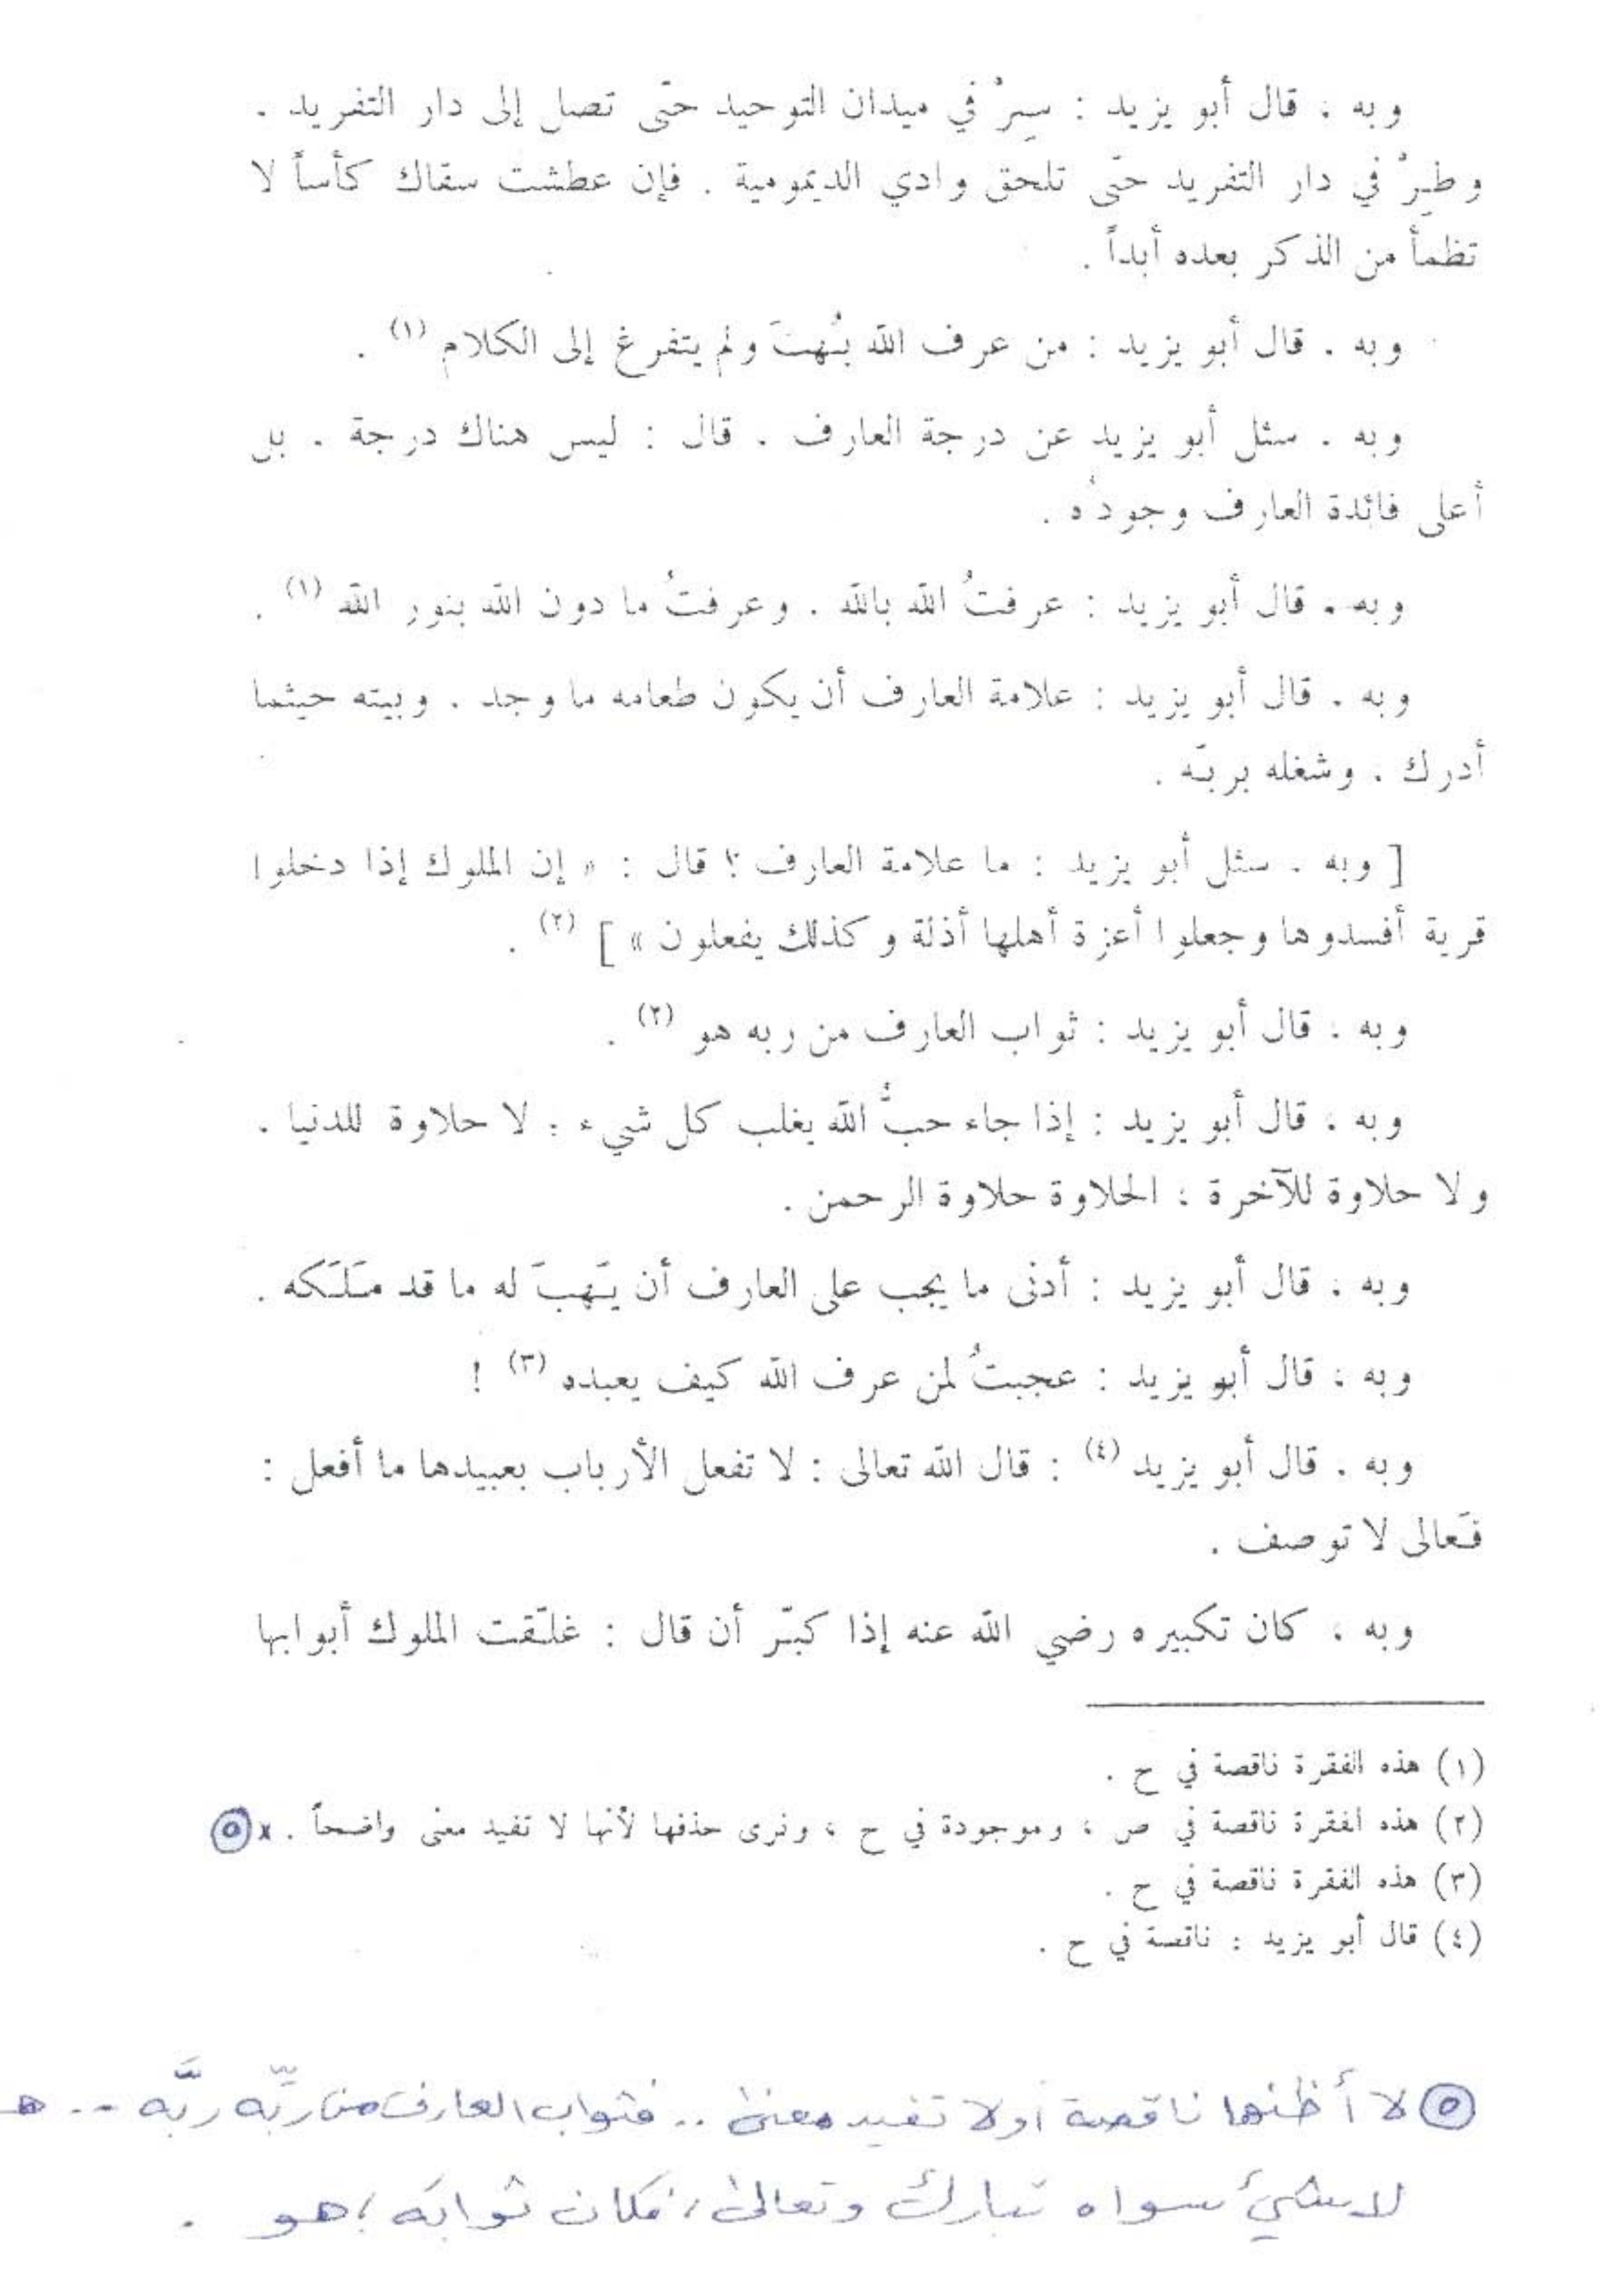 وبه ، قال أبو يزيد : سِرْ في ميدان التوحيد حتّى تصل إلى دار التفريد .
وطِرْ في دار التفريد حتّى تلحق وادي الديمومية . فإن عطشت سقاك كأساً لا
تظمأ من الذكر بعده أبداً .
وبه . قال أبو يزيد : من عرف الله بُهتَ ولم يتفرغ إلى الكلام (١) .
وبه . سئل أبو يزيد عن درجة العارف . قال : ليس هناك درجة . بل
أعلى فائدة العارف وجودُه .
وبه . قال أبو يزيد : عرفتُ الله بالله . وعرفتُ ما دون الله بنور الله (١) .
وبه . قال أبو يزيد : علامة العارف أن يكون طعامه ما وجد . وبيته حيثما
أدرك . وشغله بربّه .
[ وبه . سئل أبو يزيد : ما علامة العارف ؟ قال : « إن الملوك إذا دخلوا
قرية أفسدوها وجعلوا أعزة أهلها أذلة وكذلك يفعلون » ] (٢) .
وبه ، قال أبو يزيد : ثواب العارف من ربه هو (٢) .
وبه ، قال أبو يزيد : إذا جاء حبُّ الله يغلب كل شيء : لا حلاوة للدنيا .
ولا حلاوة للآخرة ؛ الحلاوة حلاوة الرحمن .
وبه ، قال أبو يزيد : أدنى ما يجب على العارف أن يَهبَ له ما قد مَلَكه .
وبه ، قال أبو يزيد : عجبتُ لمن عرف الله كيف يعبده (٣) !
وبه . قال أبو يزيد (٤) : قال الله تعالى : لا تفعل الأرباب بعبيدها ما أفعل :
فَعالى لا توصف .
وبه ، كان تكبيره رضي الله عنه إذا كبّر أن قال : غلّقت الملوك أبوابها
(١) هذه الفقرة ناقصة في ح .
(٢) هذه الفقرة ناقصة في ص ، وموجودة في ح ، ونرى حذفها لأنها لا تفيد معنى واضحاً . x ٥
(٣) هذه الفقرة ناقصة في ح .
(٤) قال أبو يزيد : ناقصة في ح .
٥ لا أظنها ناقصة أو لا تفيد معنىً .. فثواب العارف من ربِّه ربَّه ..
لا شيئ سواه تبارك وتعالى ، فكان ثوابَه ؛ هو .